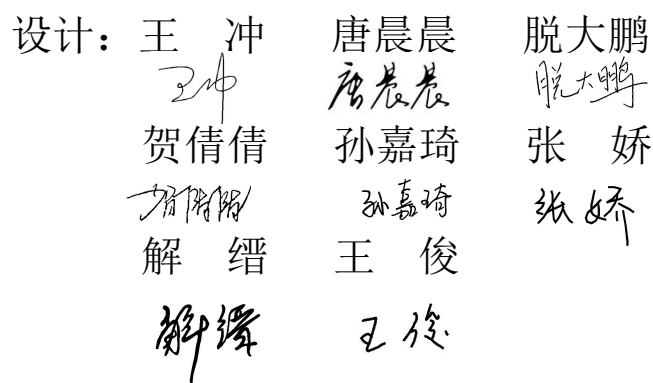 设计：王　冲　唐晨晨　脱大鹏
王冲　唐晨晨　脱大鹏
贺倩倩　孙嘉琦　张　娇
贺倩倩　孙嘉琦　张娇
解　缙　王　俊
解缙　王俊